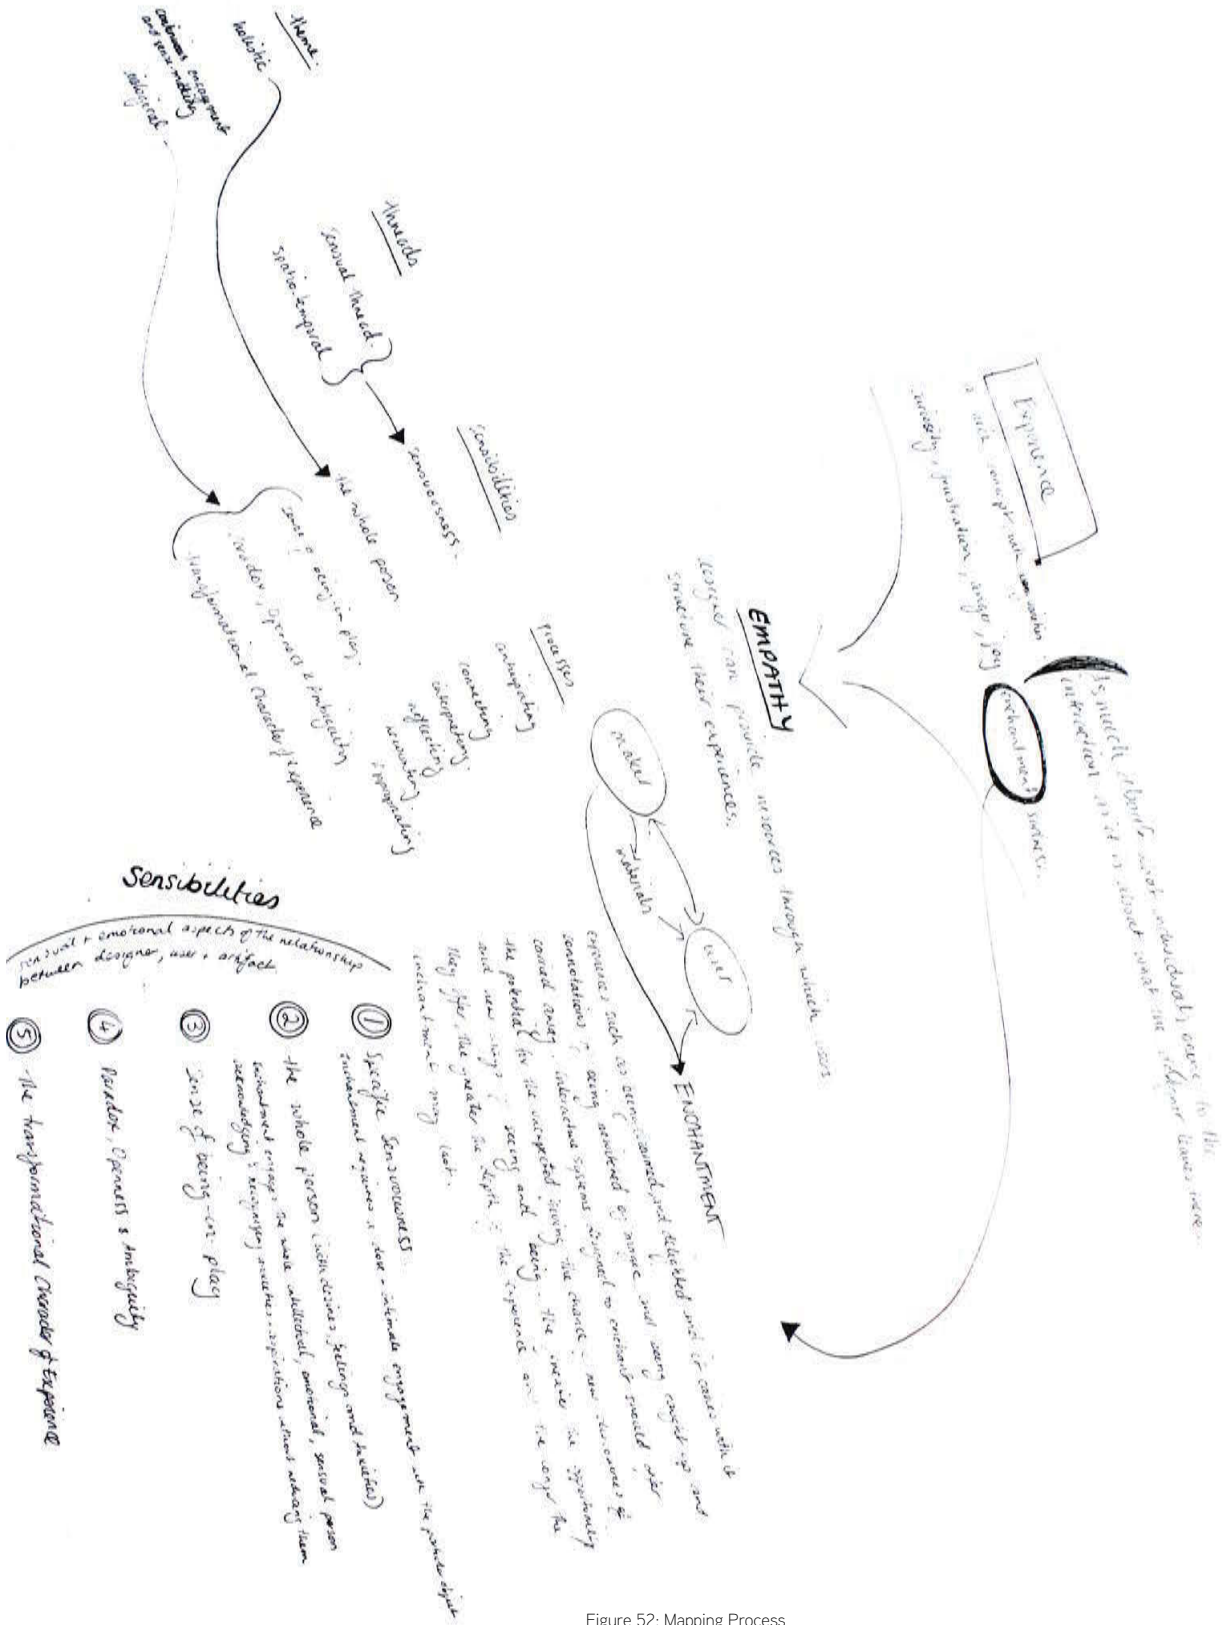 Experience
is a rich concept with
curiosity, frustration, anger, joy
enchantment
is much about what individuals bring to the
interaction as it is about what the designer leaves there.
EMPATHY
designer can provide resources through which users
structure their experiences.
maker
materials
user
ENCHANTMENT
experiences such as being charmed and delighted and it carries with it
connotations of being bewitched by magic and being caught up and
carried away. interactive systems designed to enchant should offer
the potential for the unexpected, giving the chance of new discoveries of
and new ways of seeing and being. The greater the opportunity
they offer, the greater the depth of the experience and the longer the
enchantment may last.
theme.
holistic
continuous engagement
and sense-making
dialogical
threads
sensual thread.
spatio-temporal
sensibilities
sensuousness.
the whole person
sense of being-in-play.
paradox, openness & Ambiguity
transformational Character of Experience
processes
anticipating
connecting
interpreting
reflecting
recounting
appropriating
Sensibilities
sensual + emotional aspects of the relationship
between designer, user + artifact.
① Specific Sensuousness.
enchantment requires a close + intimate engagement with the particular object
② the whole person (with desires, feelings and anxieties)
Enchantment engages the whole intellectual, emotional, sensual person
acknowledging & recognising anxieties + aspirations without reducing them
③ Sense of being-in-play
④ Paradox, Openness & Ambiguity
⑤ The transformational Character of Experience
Figure 52: Mapping Process